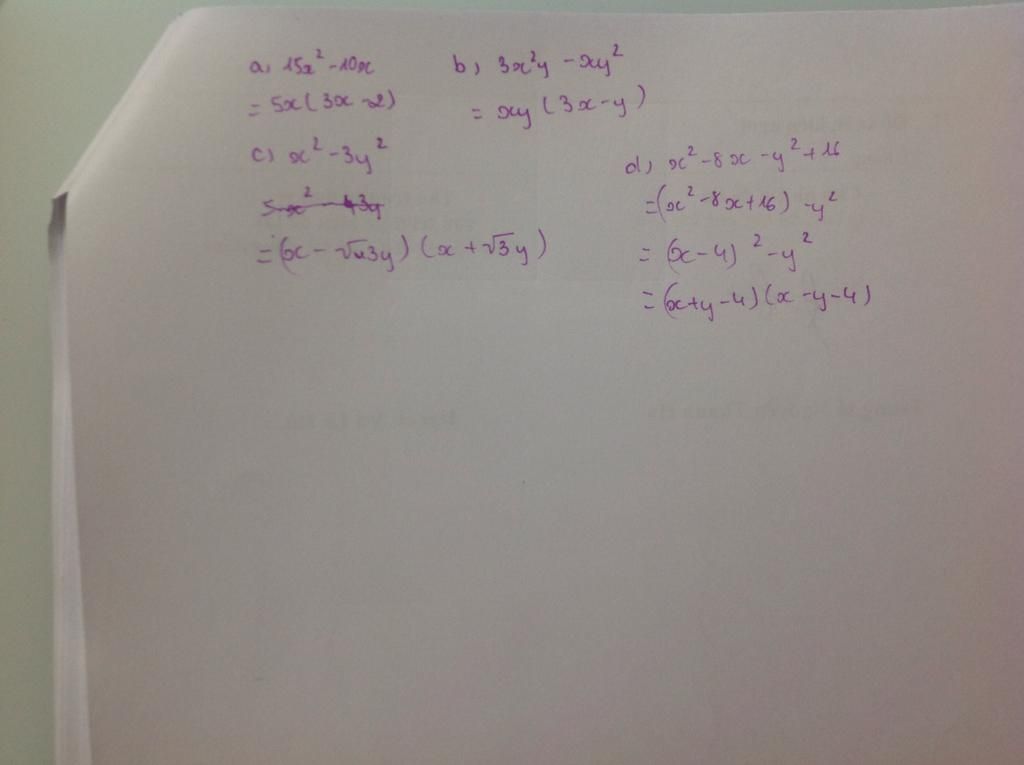 a, 15x² - 10x
= 5x(3x - 2)
b, 3x²y - xy²
= xy(3x - y)
c, x² - 3y²
= (x - √3y)(x + √3y)
d, x² - 8x - y² + 16
= (x² - 8x + 16) - y²
= (x - 4)² - y²
= (x + y - 4)(x - y - 4)